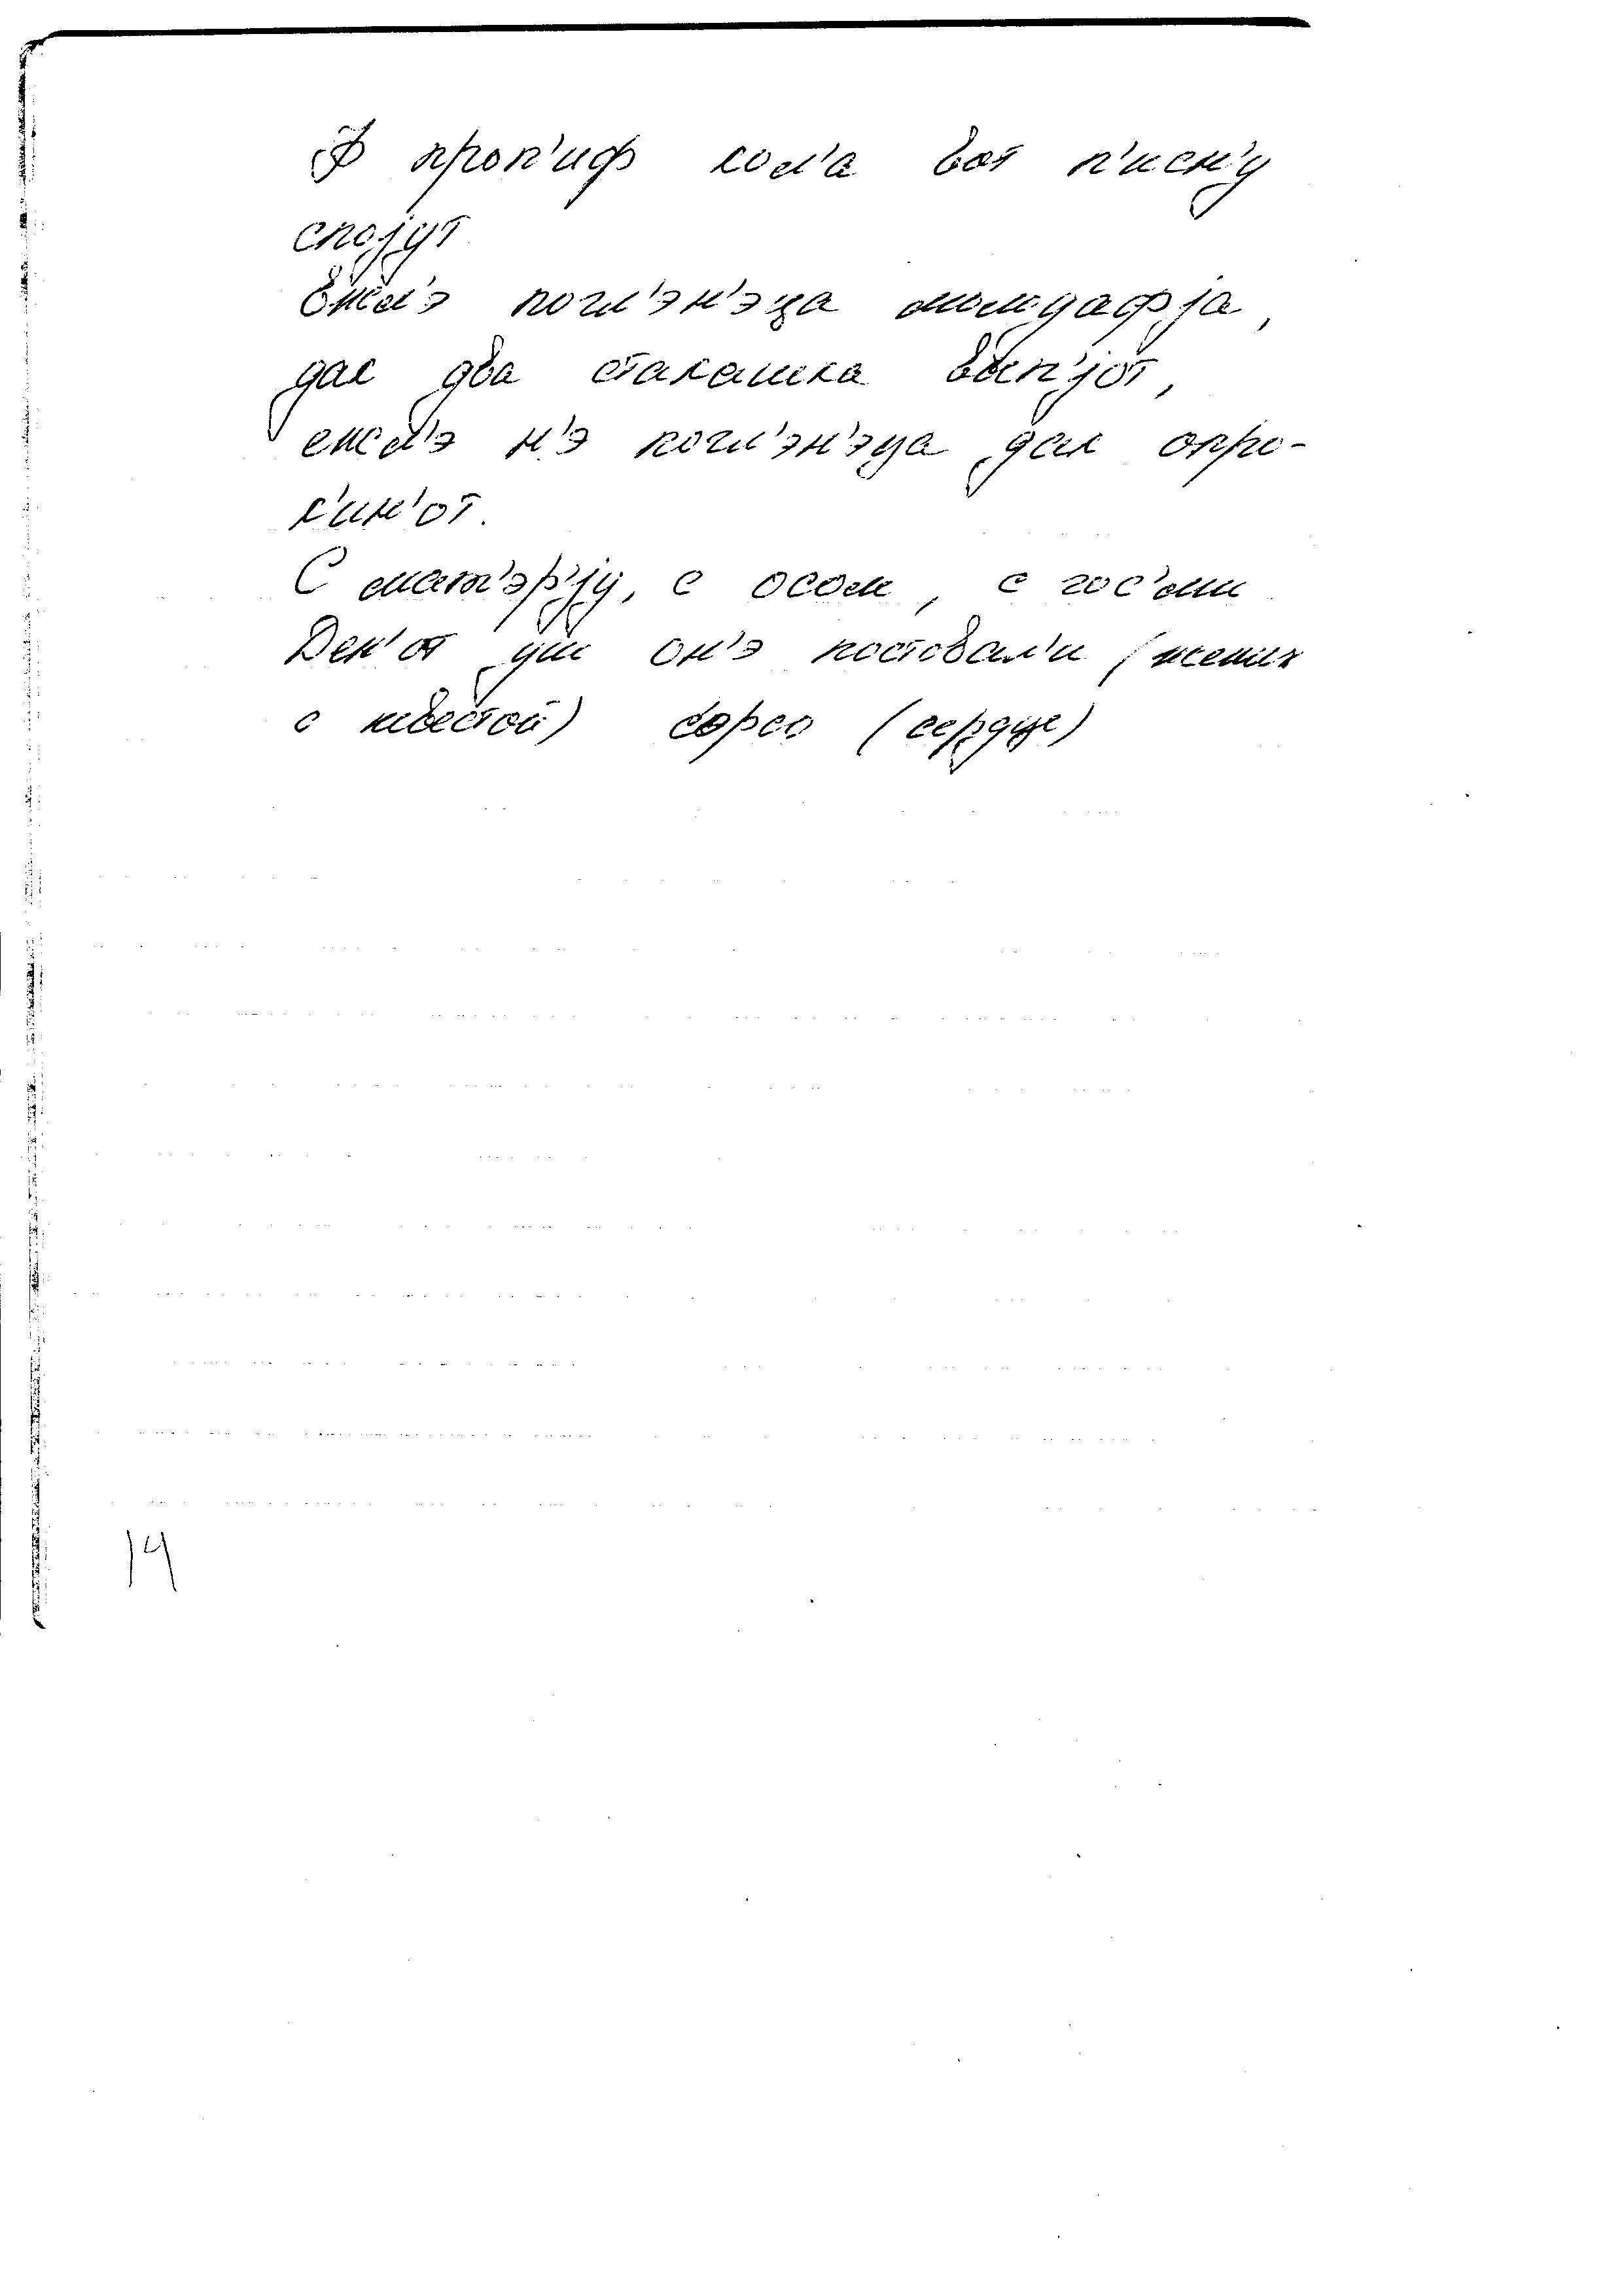 Ф проп'иф кол'а вот п'исн'у
спојут
Ежел'э погл'эн'эца молодафја,
дак два стакашка вып'јот,
ежел'э н'э погл'эн'эца дак опро-
к'ин'от.
С мат'эр'ју, с осом, с гос'ми
Ден'от уш он'э постовал'и (жених
с невестой) сорсо (сердце)
14